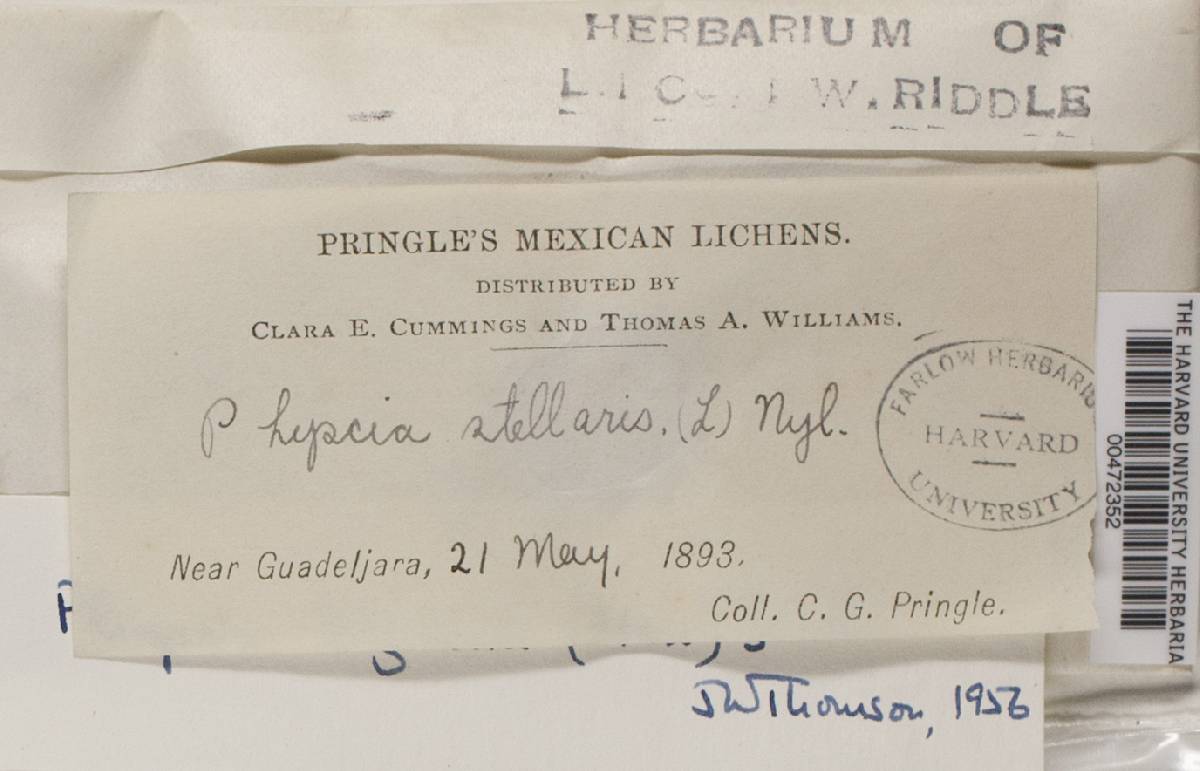 HERBARIUM OF
W. RIDDLE
PRINGLE'S MEXICAN LICHENS.
DISTRIBUTED BY
CLARA E. CUMMINGS AND THOMAS A. WILLIAMS.
Physcia stellaris. (L) Nyl.
FARLOW HERBARIU
HARVARD
UNIVERSITY
Near Guadeljara, 21 May, 1893.
Coll. C. G. Pringle.
JWThomson, 1956
THE HARVARD UNIVERSITY HERBARIA
00472352